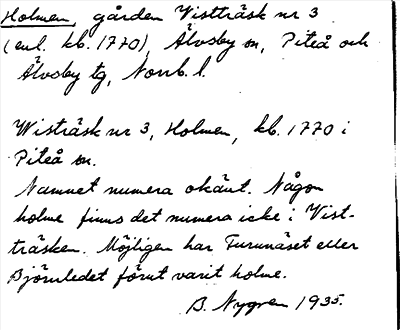 Holmen, gården Vistträsk nr 3
(enl. kb. 1770), Älvsby sn, Piteå och
Älvsby tg, Norrb. l.
Wisträsk nr 3, Holmen, kb. 1770 i
Piteå sn.
Namnet numera okänt. Någon
holme finns det numera icke i Vist-
träsken. Möjligen har Furunäset eller
Björnledet förut varit holme.
B. Nygren 1935.